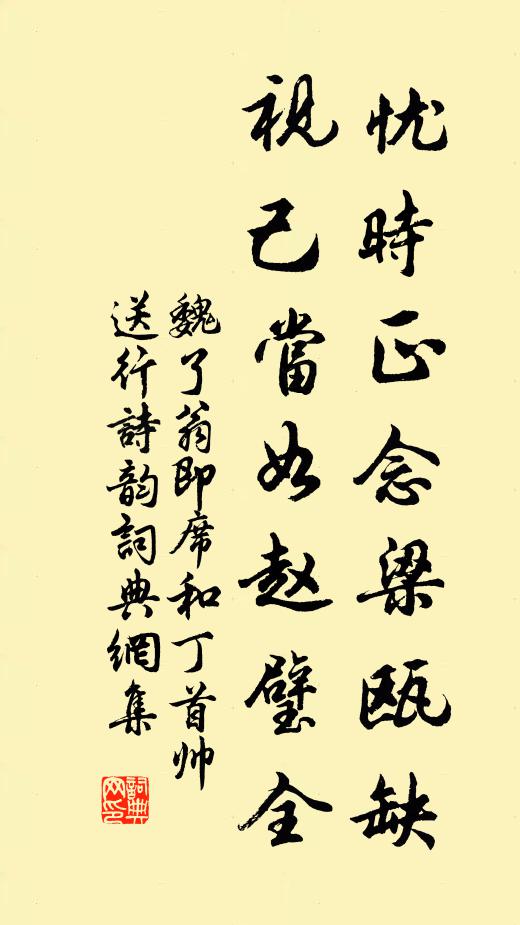 忧時正念梁瓯缺
視己當如赵璧全
魏了翁即席和丁首帅
送行詩韵詞典網集
詞典网印